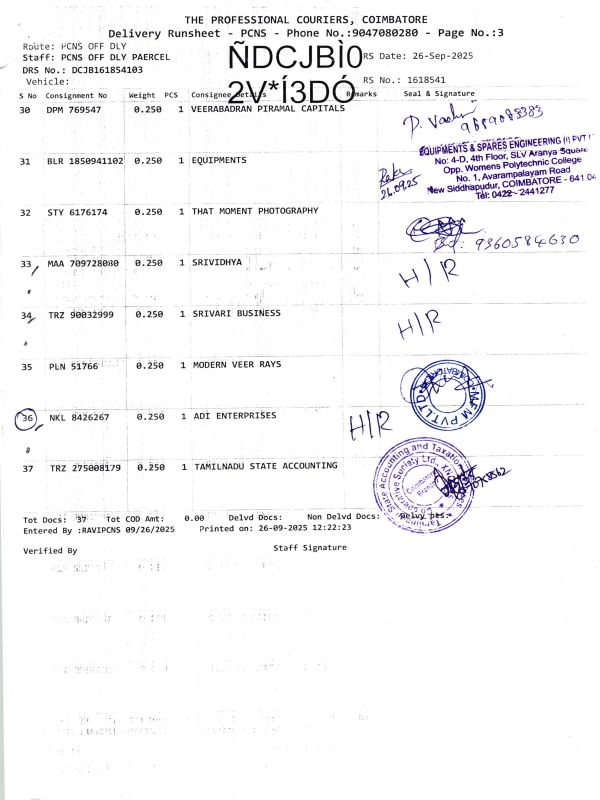 THE PROFESSIONAL COURIERS, COIMBATORE
Delivery Runsheet - PCNS - Phone No.:9047080280 - Page No.:3
Route: PCNS OFF DLY
Staff: PCNS OFF DLY PAERCEL
ÑDCJBÌ0
RS Date: 26-Sep-2025
DRS No.: DCJB161854103
Vehicle:
2V*Í3DÓ
RS No.: 1618541
S No Consignment No Weight PCS Consignee Details Remarks Seal & Signature
30 DPM 769547 0.250 1 VEERABADRAN PIRAMAL CAPITALS
31 BLR 1850941102 0.250 1 EQUIPMENTS
EQUIPMENTS & SPARES ENGINEERING (I) PVT
No: 4-D, 4th Floor, SLV Aranya Square
Opp. Womens Polytechnic College
No. 1, Avarampalayam Road
New Siddhapudur, COIMBATORE - 641 04
Tel: 0422 - 2441277
26.09.25
32 STY 6176174 0.250 1 THAT MOMENT PHOTOGRAPHY
9360584630
33 MAA 709728080 0.250 1 SRIVIDHYA
H/R
34 TRZ 90032999 0.250 1 SRIVARI BUSINESS
H/R
35 PLN 51766 0.250 1 MODERN VEER RAYS
MFM PVT LTD
COIMBATORE
36 NKL 8426267 0.250 1 ADI ENTERPRISES
H/R
37 TRZ 275008179 0.250 1 TAMILNADU STATE ACCOUNTING
State Accounting and Taxation
Coimbatore
Branch
Tot Docs: 37 Tot COD Amt: 0.00 Delvd Docs: Non Delvd Docs: Delvy pts:
Entered By :RAVIPCNS 09/26/2025 Printed on: 26-09-2025 12:22:23
Verified By Staff Signature